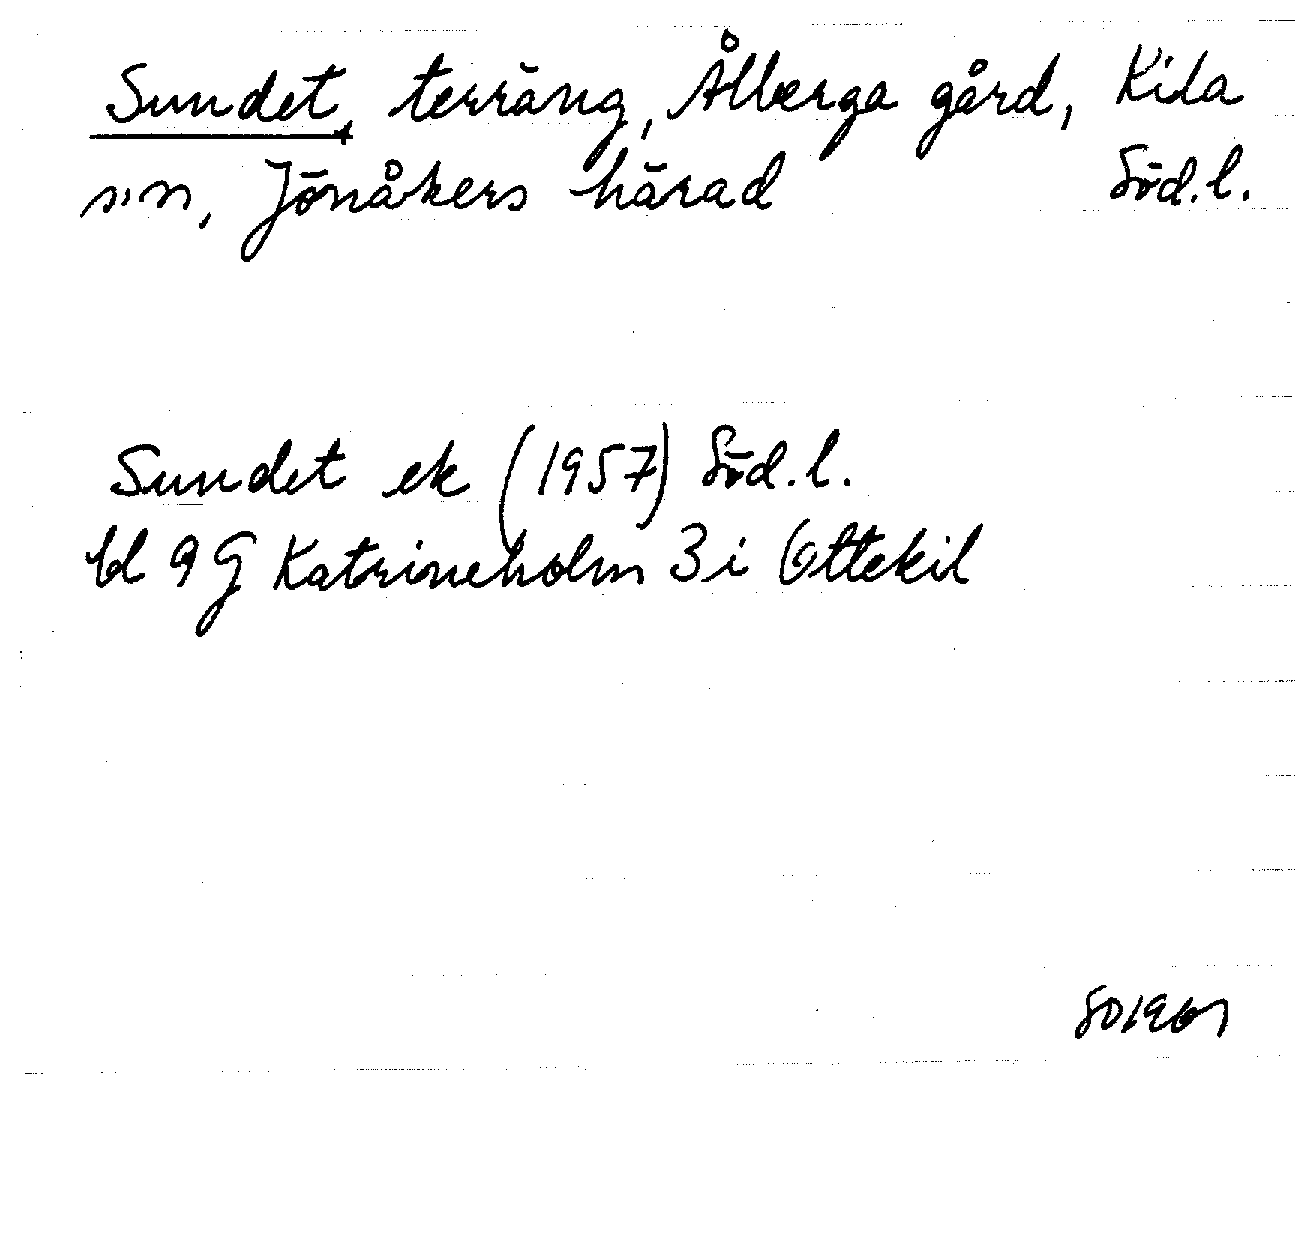 Sundet, terräng, Ålberga gård, Kila
s:n, Jönåkers härad Söd.l.
Sundet ek (1957) Söd.l.
bl 9G Katrineholm 3i Ottekil
SO1967